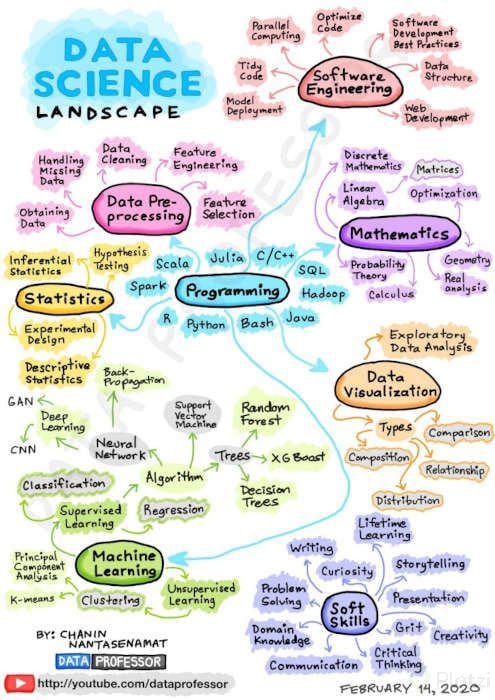 DATA
SCIENCE
LANDSCAPE
Parallel
Computing
Optimize
Code
Software
Development
Best Practices
Tidy
Code
Software
Engineering
Data
Structure
Model
Deployment
Web
Development
Handling
Missing
Data
Data
Cleaning
Feature
Engineering
Obtaining
Data
Data Pre-
processing
Feature
Selection
Discrete
Mathematics
Matrices
Linear
Algebra
Optimization
Mathematics
Probability
Theory
Calculus
Geometry
Real
analysis
Inferential
Statistics
Hypothesis
Testing
Statistics
Experimental
Design
Descriptive
Statistics
Scala
Julia
C/C++
SQL
Spark
Programming
Hadoop
R
Python
Bash
Java
Exploratory
Data Analysis
Data
Visualization
Types
Comparison
Composition
Relationship
Distribution
Back-
Propagation
GAN
Deep
Learning
CNN
Neural
Network
Support
Vector
Machine
Random
Forest
Algorithm
Trees
XG Boost
Decision
Trees
Classification
Supervised
Learning
Regression
Machine
Learning
Principal
Component
Analysis
K-means
Clustering
Unsupervised
Learning
Lifetime
Learning
Writing
Curiosity
Storytelling
Problem
Solving
Presentation
Soft
Skills
Grit
Creativity
Domain
Knowledge
Critical
Thinking
Communication
BY: CHANIN
NANTASENAMAT
DATA PROFESSOR
http://youtube.com/dataprofessor
FEBRUARY 14, 2020
Platzi